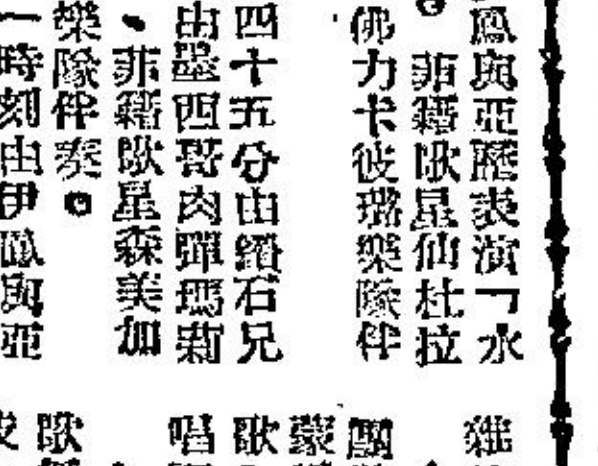 鳳與亞歷表演「水
。菲籍歌星仙杜拉
佛力卡彼璐樂隊伴
四十五分由鑽石兄
由墨西哥肉彈瑪莉
、菲籍歌星森美加
樂隊伴奏。
一時刻由伊鳳與亞
雜
團
蒙
歌
唱
歌